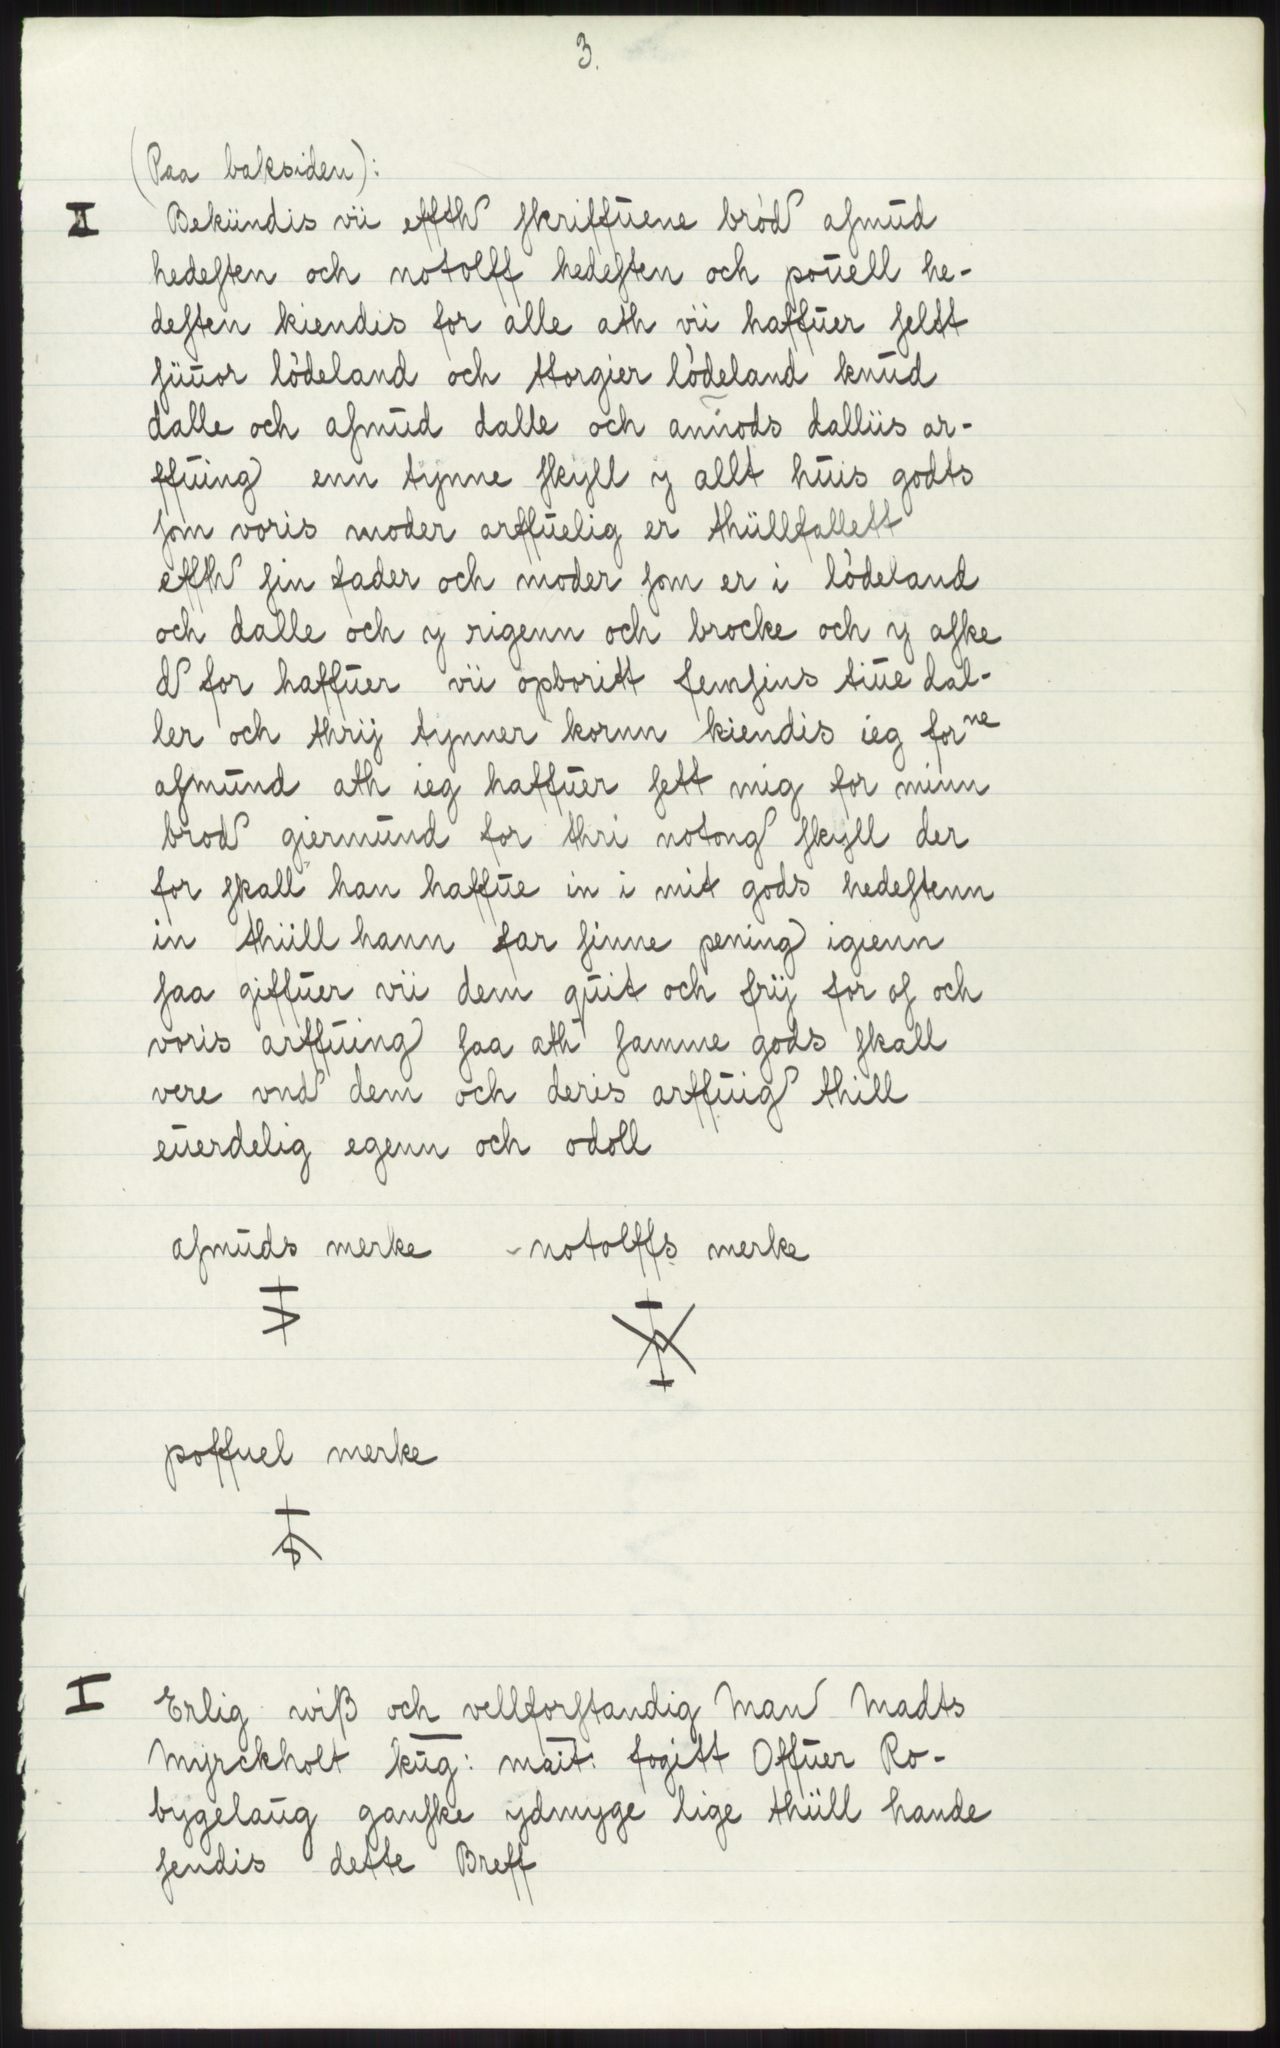 3.
(Paa baksiden):
II Bekündis vii effth skriffuene brød asmud
hedesten och notolff hedesten och pouell he-
desten kiendis for alle ath vii haffuer seltt
siiuor lødeland och ttorgier lødeland knud
dalle och asmud dalle och amiods dalliis ar-
ffuing enn tynne skyll y allt huis godts
som voris moder arffuelig er thüllfallett
effth sin fader och moder som er i lødeland
och dalle och y rigenn och brocke och y aske
d for haffuer vii opboritt femsins tiue dal-
ler och thrij tynner kornn kiendis ieg forne
asmund ath ieg haffuer sett mig for minn
brod giermund for thri notong skyll der
for skall han haffue in i mit gods hedestenn
in thiill hann far sinne pening igienn
saa giffuer vii dem quit och frij for os och
voris arffuing saa ath samme gods skall
vere vnd dem och deris arffuig thill
euerdelig egenn och odoll
asmuds merke notolffs merke
poffuel merke
I Erlig wiß och vellforstandig Man Madts
Myrckholt kug: mait: fogitt Offuer Ro-
bygelaug ganske ydmyge lige thüll hande
sendis dette Breff